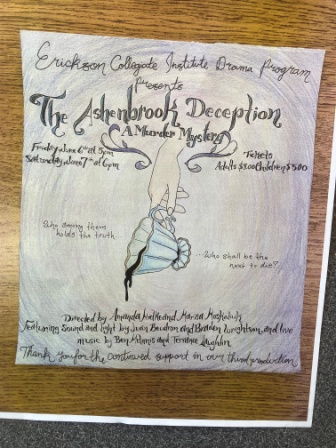 Erickson Collegiate Institute Drama Program
presents
The Ashenbrook Deception
A Murder Mystery
Friday June 6th at 5pm
Saturday June 7th at 6pm
Tickets
Adults $8.00 Children $5.00
Who among them
holds the truth...
...Who shall be the
next to die?
Directed by Amanda and Marisa
Featuring Sound and light by and and live
music by Ben and Terrence
Thank you for the continued support in our third production